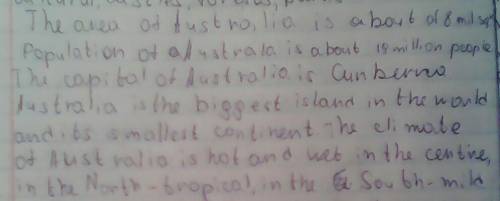 The area of Australia is about of 8 mil sq
Population of australa is about 19 million people
The capital of Australia is Cunberra
Australia is the biggest island in the would
and its smallest continent. The climate
of Australia is hot and wet in the centre,
in the North-tropical, in the South-milk